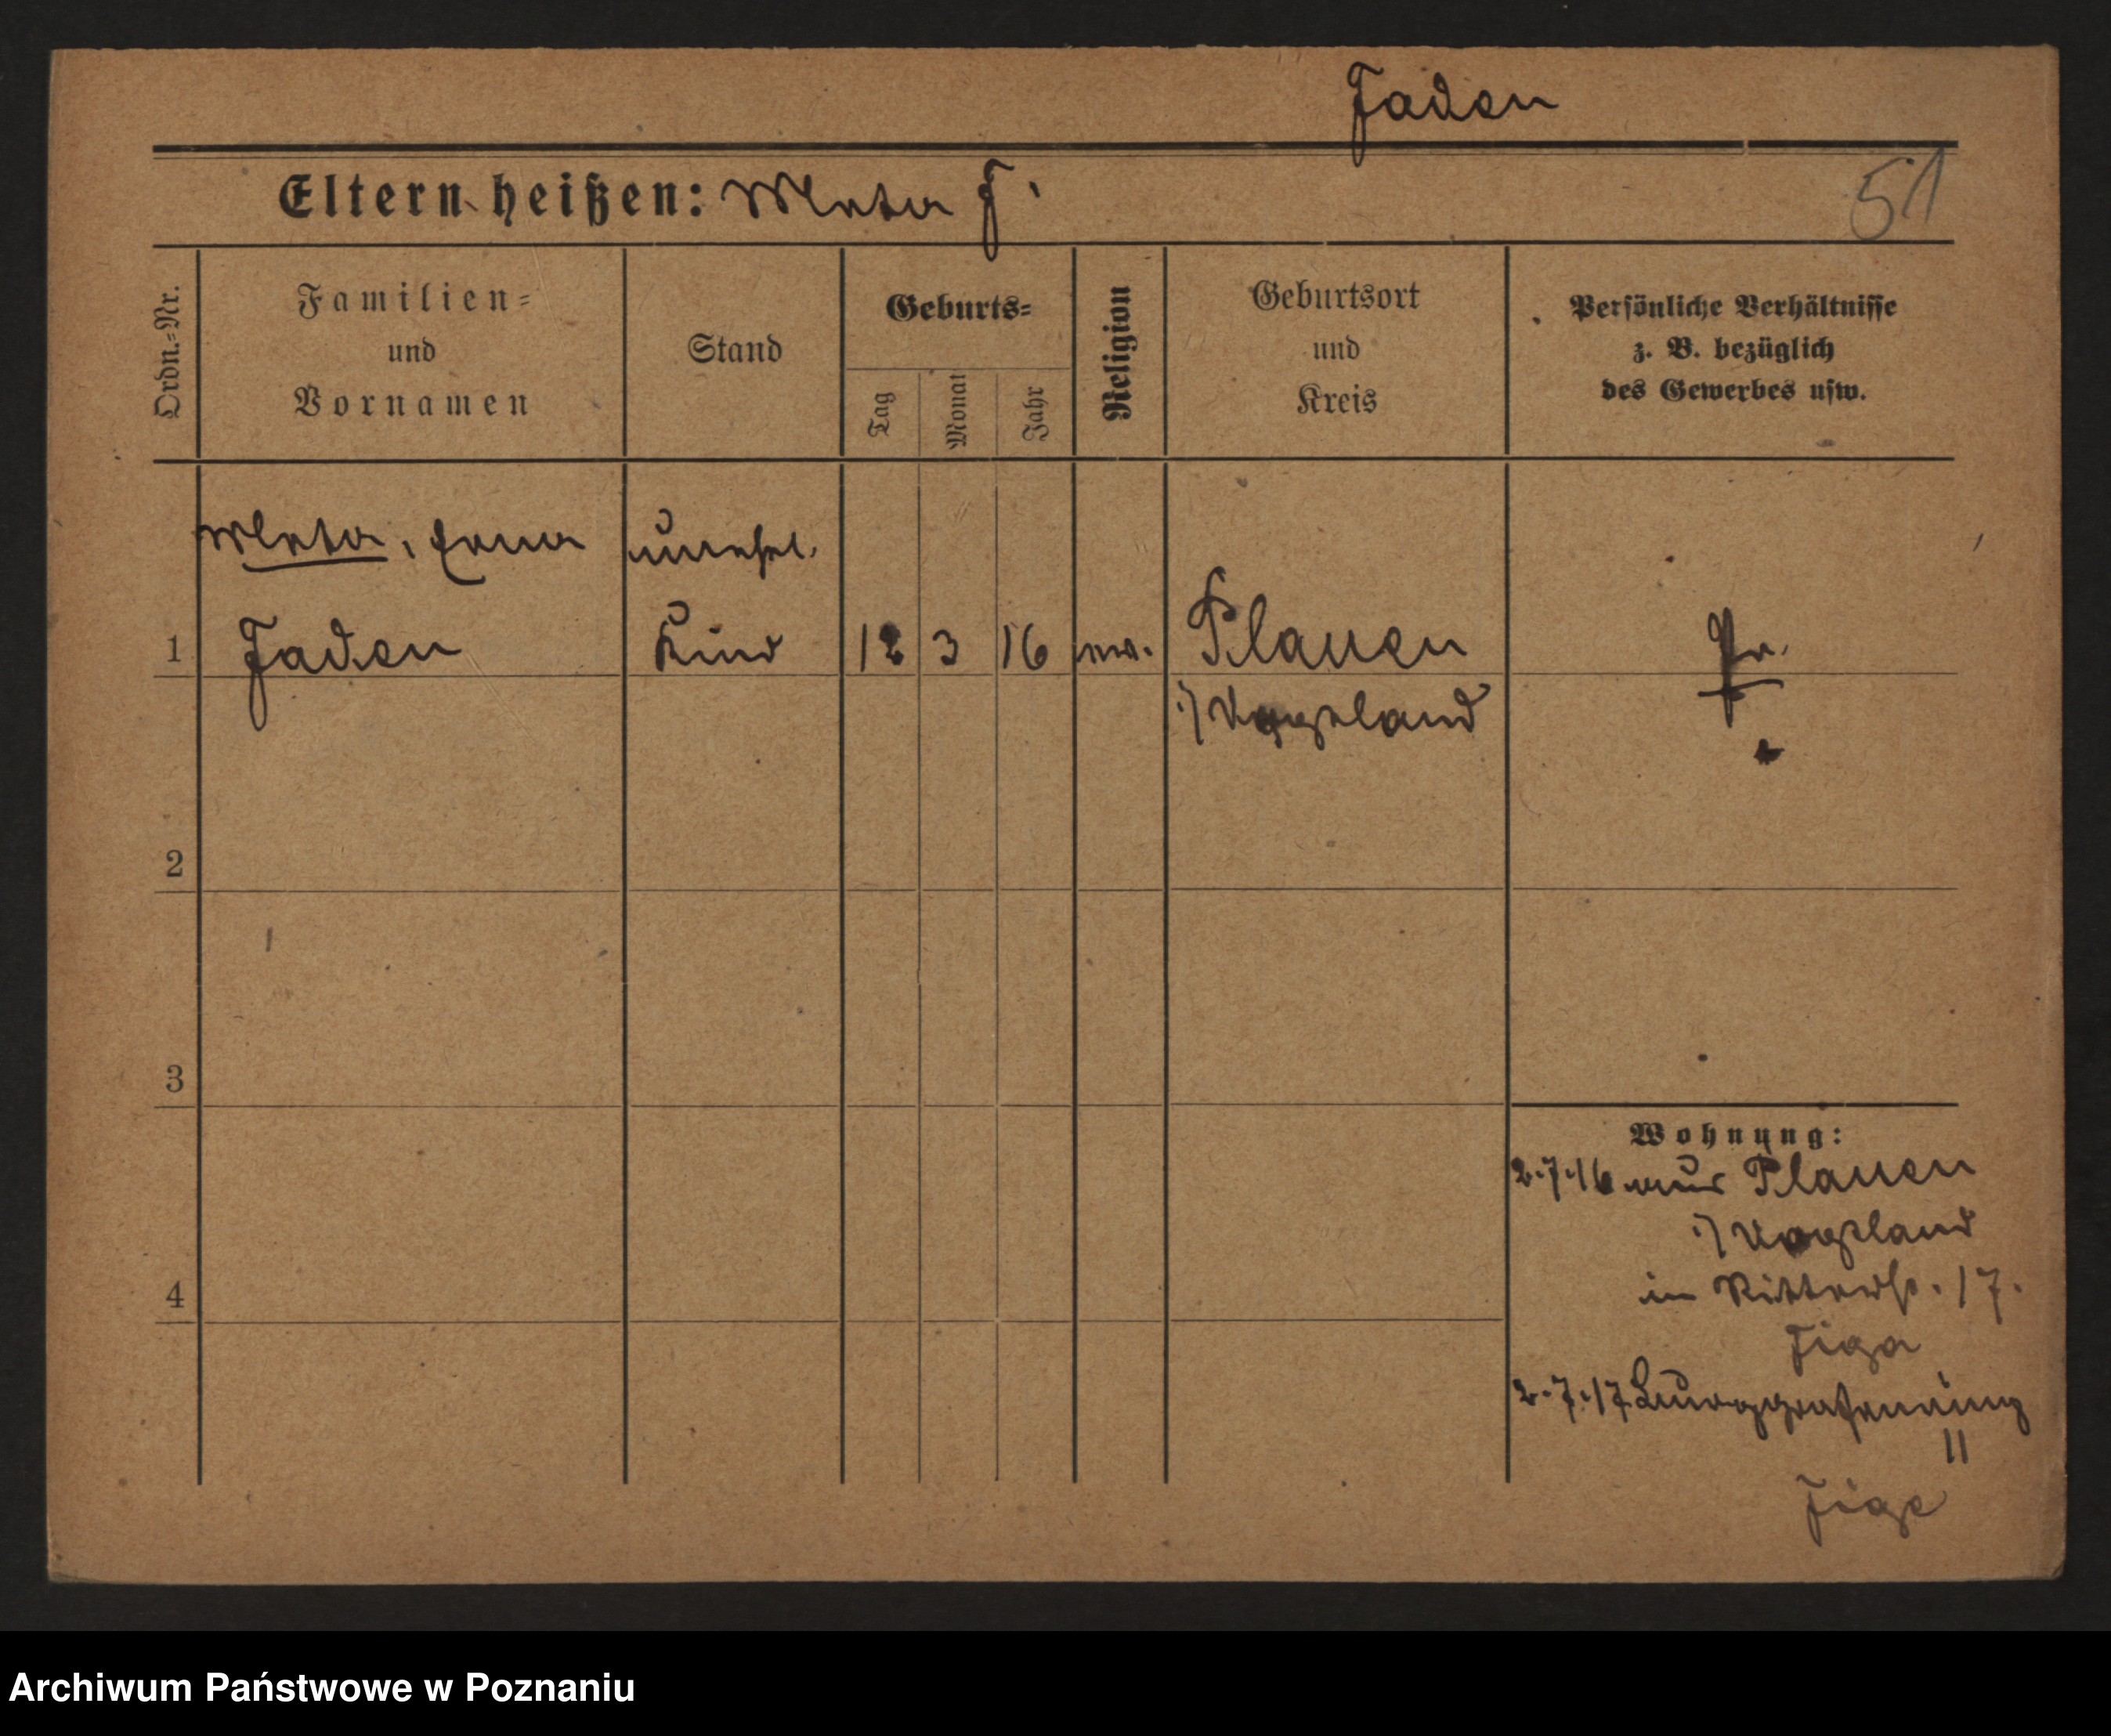 Faden
Eltern heißen: Meta F.
51
Ordn.-Nr.
Familien-
und
Vornamen
Stand
Geburts-
Tag
Monat
Jahr
Religion
Geburtsort
und
Kreis
Persönliche Verhältnisse
z. B. bezüglich
des Gewerbes usw.
Meta, unehel.
1 Faden Kind 12 3 16 Plauen Pr.
i/ Vogtland
2
3
4
Wohnung:
2.7.16 aus Plauen
i/ Vogtland
in Ritterstr. 17.
2.7.17 Burggrafenring
11
Archiwum Państwowe w Poznaniu